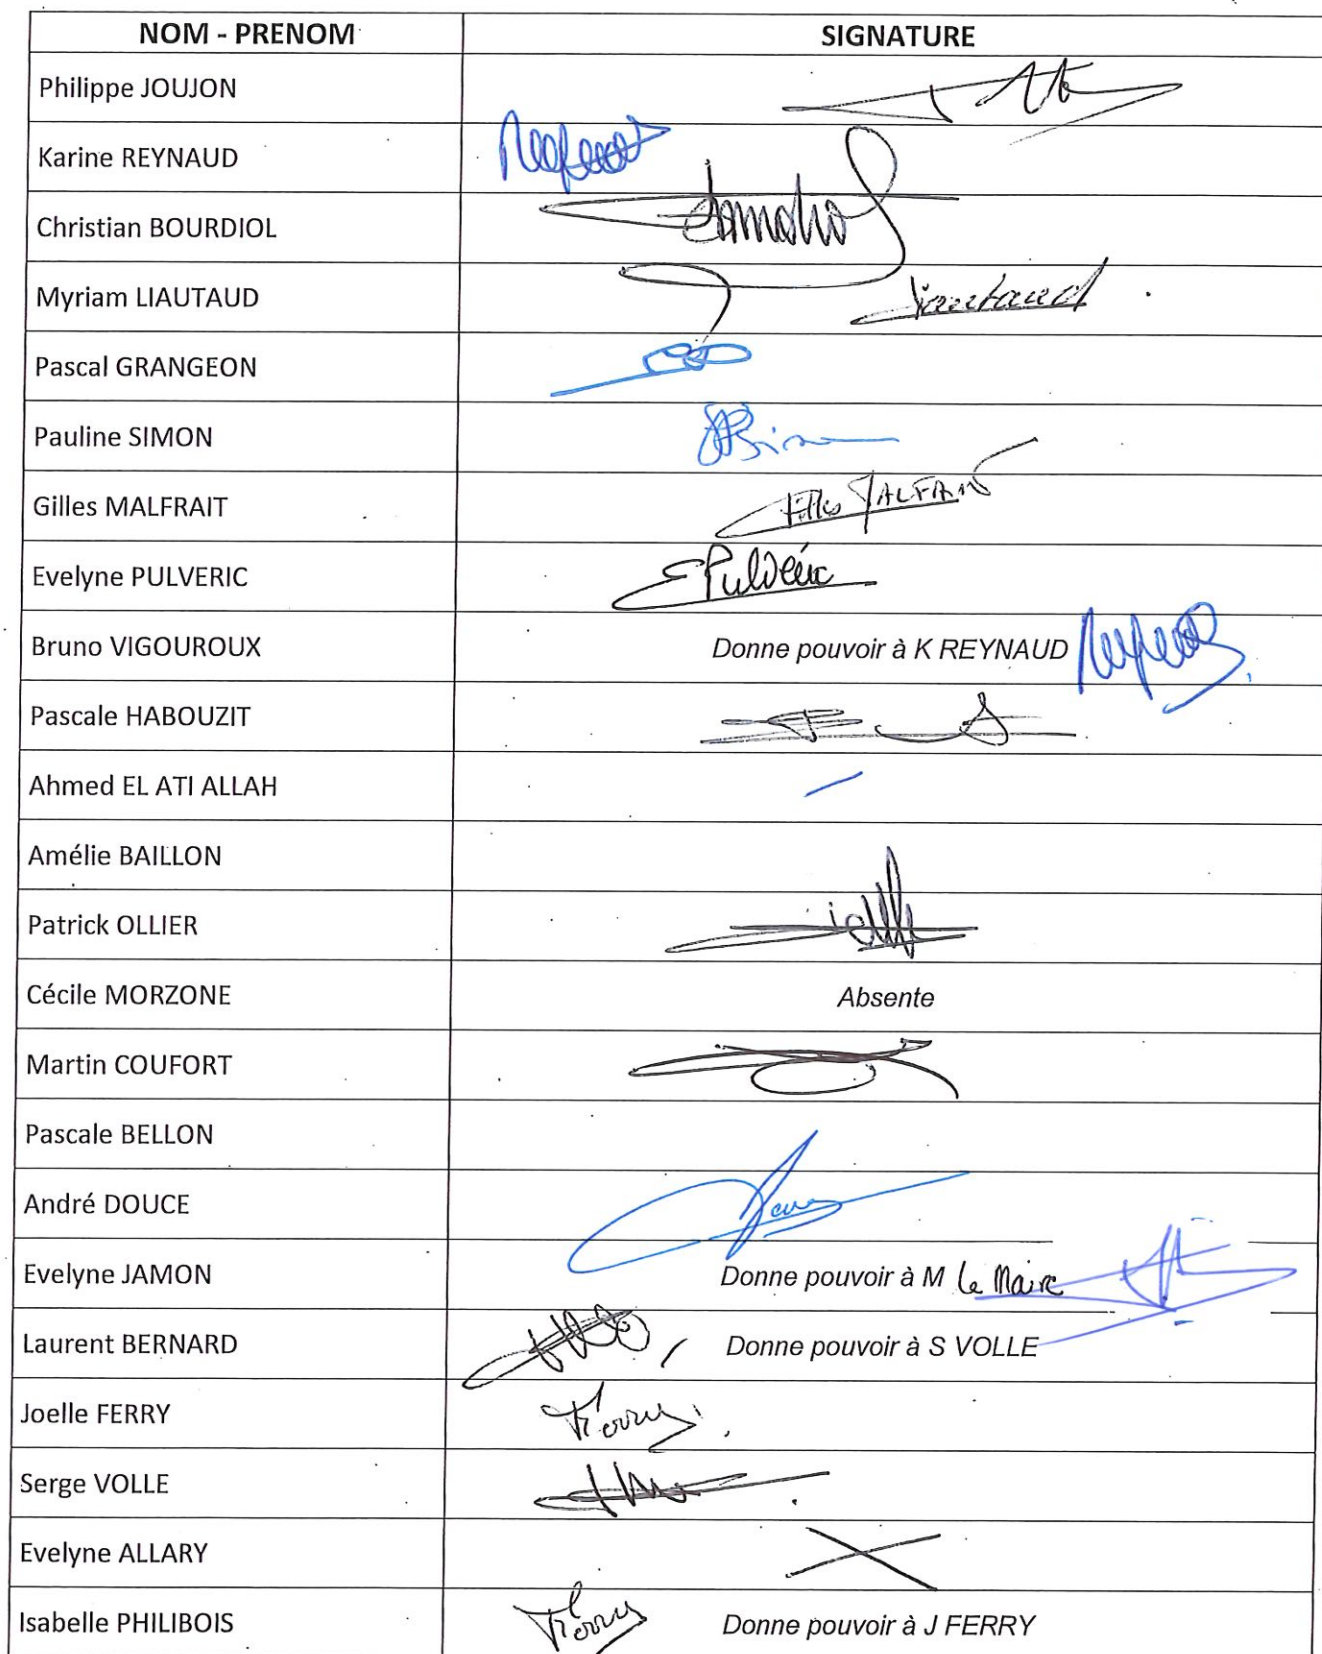 NOM - PRENOM SIGNATURE
Philippe JOUJON
Karine REYNAUD
Christian BOURDIOL
Myriam LIAUTAUD
Pascal GRANGEON
Pauline SIMON
Gilles MALFRAIT
Evelyne PULVERIC EPulveric
Bruno VIGOUROUX Donne pouvoir à K REYNAUD
Pascale HABOUZIT
Ahmed EL ATI ALLAH
Amélie BAILLON
Patrick OLLIER
Cécile MORZONE Absente
Martin COUFORT
Pascale BELLON
André DOUCE
Evelyne JAMON Donne pouvoir à M le Maire
Laurent BERNARD Donne pouvoir à S VOLLE
Joelle FERRY Ferry
Serge VOLLE
Evelyne ALLARY
Isabelle PHILIBOIS Ferry Donne pouvoir à J FERRY